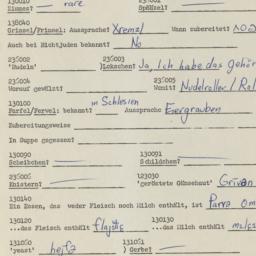 Zimmes? — rare Spänzel?
138040
Grinzel/Frinzel: Aussprache? Kremzl Wann zubereitet?
Auch bei Nichtjuden bekannt? No
232002 232003
'Nudeln' )Lokschen? Ja, ich habe das gehör
232004 232005
Vorauf gewälzt? Womit? Nudelroller/
130100 in Schlesien
Farfel/Fervel: bekannt? Aussprache Eiergrauben
Zubereitungsweise
In Suppe gegessen?
130090 130091
Scheibchen? Schildchen?
232006 123030
Knistern? 'geröstete Gänsehaut'
130140
Ein Essen, das weder Fleisch noch Milch enthält, ist
130120 130130
...das Fleisch enthält ...das Milch enthält
131060 131061
'yeast' ) Gerbe?